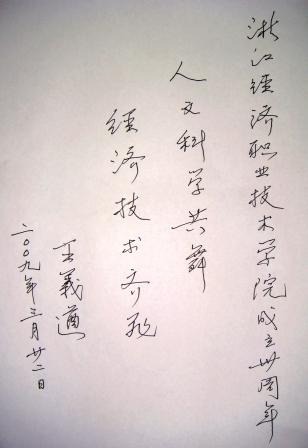 浙江經済职业技术学院成立卅周年
人文科学共舞
經済技术齐飞
王義遒
二〇〇九年三月廿二日